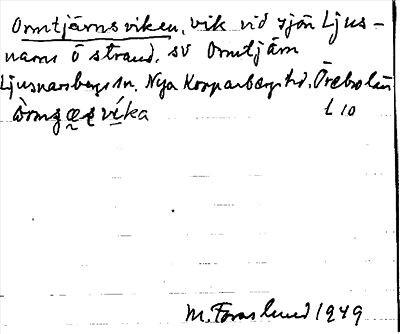 Ormtjärnsviken, vik vid sjön Ljus-
narns ö strand, sv Ormtjärn
Ljusnarsbergs sn. Nya Kopparbergs hd. Örebro län
víka L 10
M. Forslund 1949